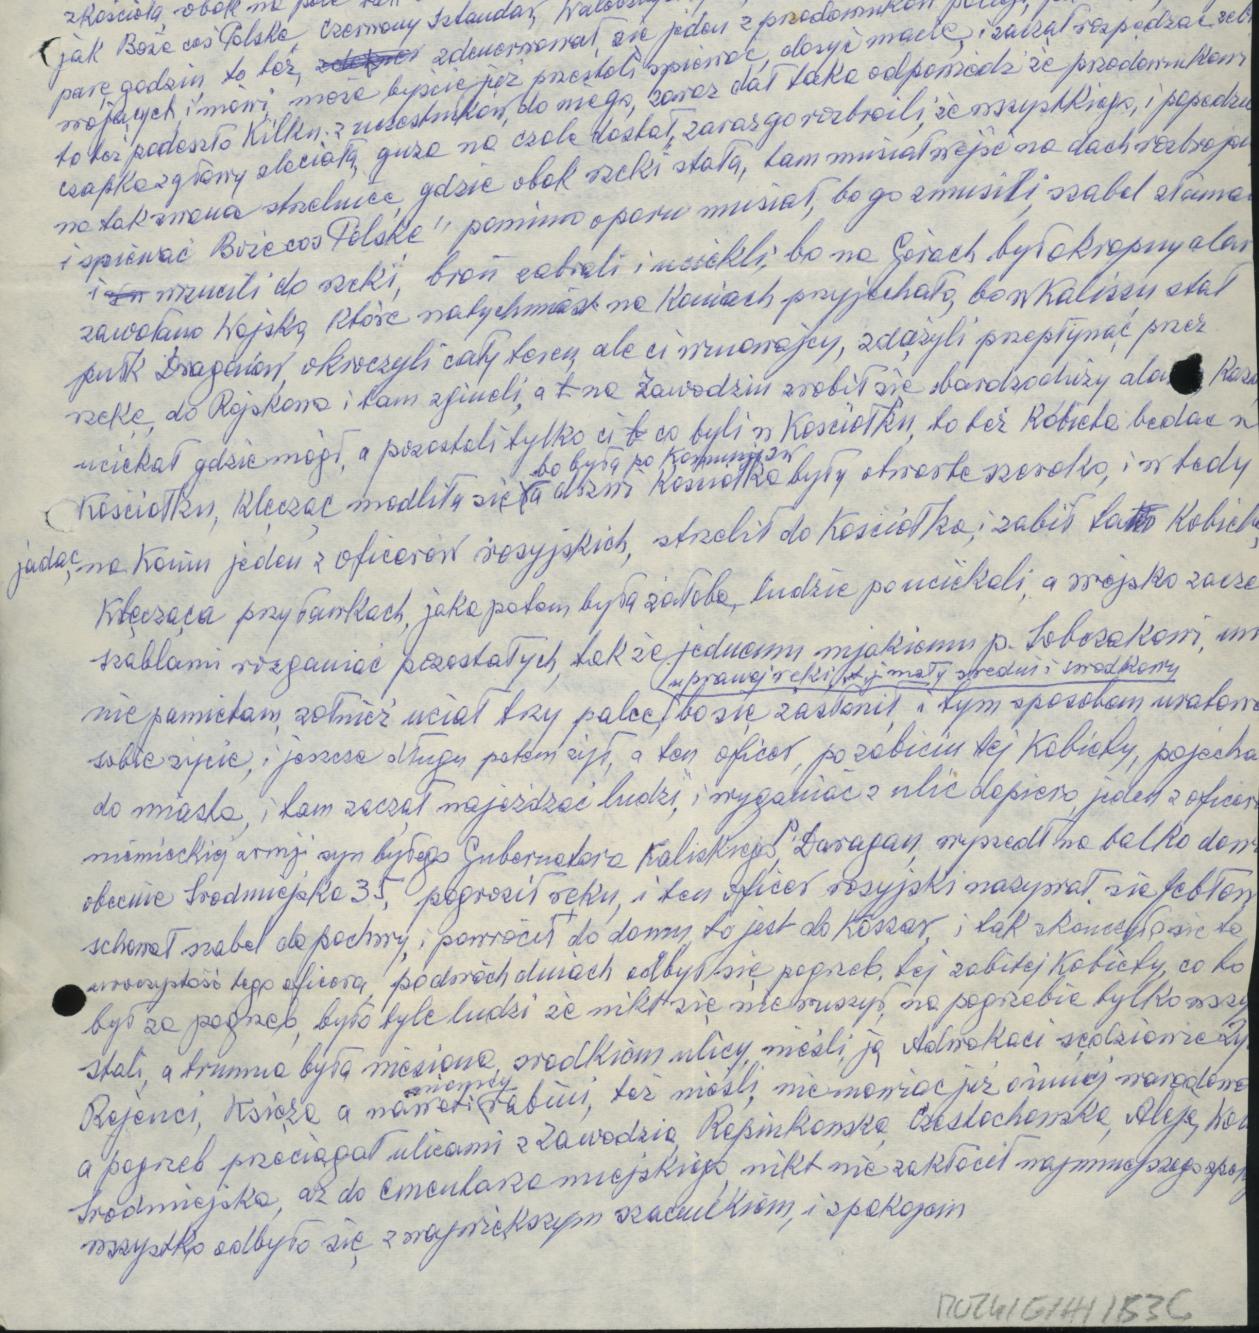 z kościoła, obok na pole
jak Boże coś Polskę, Czerwony Sztandar,
parę godzin, to też, zdenerwował, się jeden z przodowników policji,
wojących, i mówi, może byście już przestali śpiewać, dosyć macie, i zaczął rozpędzać
to też podeszło kilku z uczestników, do niego, zaraz dał taka odpowiedź że przodownikowi
czapka z głowy zleciała, guza na czole dostał, zaraz go rozbroili, ze wszystkiego, i popędzi
na tak zwana strzelnicę, gdzie obok rzeki stała, tam musiał wejść na dach rozbrojo
i śpiewać Boże coś Polskę" pomimo oporu musiał, bo go zmusili, szabel złama
i wrzucili do rzeki, broń zabrali i uciekli, bo na Górach był okropny alar
zawołano Wojska, które natychmiast na koniach przyjechało, bo w Kaliszu stał
pułk Dragonów, okroczyli cały teren, ale ci winowajcy, zdążyli przepłynąć przez
rzekę, do Rajskowa i tam zgineli, a na Zawodziu zrobił się bardzo duży ala
uciekał gdzie mógł, a pozostali tylko ci co byli w Kościołku, to też kobieta będąc w
bo była po Komunji św
Kościołku, klęcząc modliła się a drzwi Kościołka były otwarte szeroko, i wtedy
jadąc, na koniu jeden z oficerów rosyjskich, strzelił do Kościołka, i zabił ta kobiet
klęcząca przy ławkach, jaka potem była żałoba, ludzie pouciekali, a wojsko zacze
szablami rozganiać pozostałych, tak że jednemu niejakiemu p. Sobczakowi,
u prawej ręki, t.j mały średni i środkowy
nie pamiętam, żołnież uciał trzy palce, bo się zasłonił, i tym sposobem uratow
sobie życie, i jeszcze długu potem żył, a ten oficer, po zabiciu tej kobiety, pojecha
do miasta, i tam zaczął najeżdżać ludzi, i wyganiać z ulic, dopiero, jeden z oficer
niemieckiej armji syn byłego Gubernatora Kaliskiego, P. Daragan, wyszedł na balko
obecnie Śródmiejska 35, pogroził ręku, i ten oficer rosyjski nazywał się
schował szabel do pochwy, i powrócił do domu, to jest do koszar, i tak skończyła się ta
uroczystość tego oficera, po dwóch dniach odbył się pogrzeb, tej zabitej kobiety, co to
był za pogrzeb, było tyle ludzi że nikt się nie ruszył, na pogrzebie tylko wszy
stali, a trumna była niesiona, środkiem ulicy, nieśli ją Adwokaci sędziowie
Rejenci, Księża a nawet rabini, też nieśli, nie mówiąc już o innej narodowo
a pogrzeb przeciągał ulicami z Zawodzia, Repinkowska, Częstochowska, Aleja,
Śródmiejska, aż do Cmentarza miejskiego, nikt nie zakłócił najmniejszego spok
wszystko odbyło się z największym szacunkiem, i spokojem